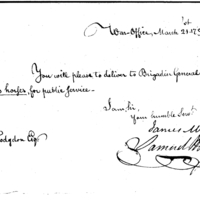 War-Office, March 21st 17
You will please to deliver to Brigadier General
horses, for public Service.
I am, Sir,
Your humble Servt
James M
Samuel
Hodgdon Esqr